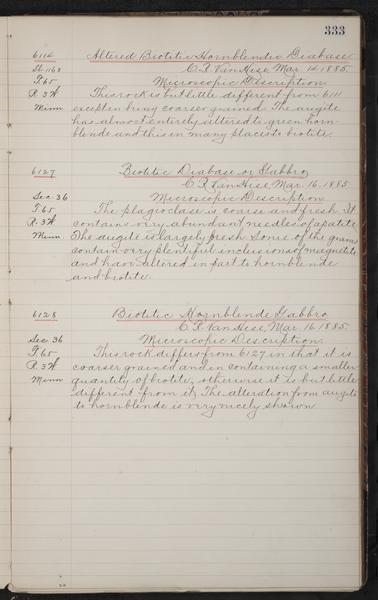 333
6112 Altered Biotitic Hornblendic Diabase
Sl. 1168 C. R. Van Hise, Mar. 14, 1885.
T. 65 Microscopic Description
R. 3 W This rock is but little different from 6111
Minn. except in being coarser grained. The augite
has almost entirely altered to green horn-
blende and this in many places to biotite.
6127 Biotitic Diabase or Gabbro
C. R. Van Hise, Mar. 16, 1885.
Sec. 36 Microscopic Description
T. 65 The plagioclase is coarse and fresh. It
R. 3 W. contains very abundant needles of apatite.
Minn The augite is largely fresh. Some of the grains
contain very plentiful inclusions of magnetite
and have altered in part to hornblende
and biotite.
6128 Biotitic Hornblende Gabbro
C. R. Van Hise, Mar. 16, 1885.
Sec. 36 Microscopic Description.
T. 65 This rock differs from 6127 in that it is
R. 3 W coarser grained and in containing a smaller
Minn quantity of biotite, otherwise it is but little
different from it. The alteration from augite
to hornblende is very nicely shown.